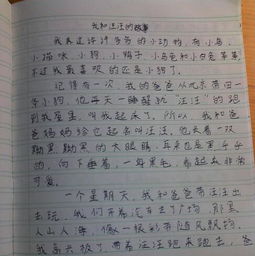 我和汪汪的故事
我养过许许多多的小动物,有小鸟、
小猫咪、小狗、小鸭子、小乌龟和小白兔等等,
不过我最喜欢的还是小狗了。
记得有一次,我的爸爸从北京带回一
条小狗,他每天一睡醒就“汪汪”的跑
到我屋里,叫我起床了。所以,我和爸
爸妈妈给它起名叫汪汪。他长着一双
黝黑黝黑的大眼睛,耳朵也是黑
的,向下垂着,一身黑毛,看起来非常
可爱。
一个星期天,我和爸爸带汪汪出
去玩,我们开着汽车去了广场,那里
人山人海,像一棵彩带随风飘扬。
我高兴极了,带着汪汪跑来跑去,爸